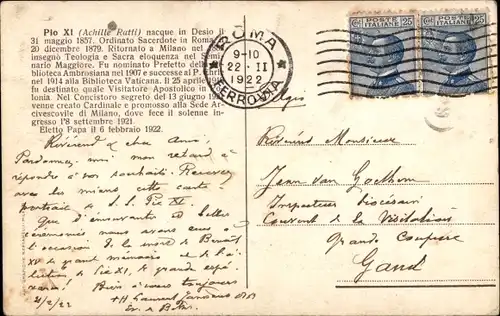 Pio XI (Achille Ratti) nacque in Desio il
31 maggio 1857. Ordinato Sacerdote in Roma
20 dicembre 1879. Ritornato a Milano nel
insegnò Teologia e Sacra eloquenza nel
nario Maggiore. Fu nominato Prefetto della
blioteca Ambrosiana nel 1907 e successe al P.
nel 1914 alla Biblioteca Vaticana. Il 25 aprile
fu destinato quale Visitatore Apostolico in
lonia. Nel Concistoro segreto del 13 giugno
venne creato Cardinale e promosso alla Sede Ar-
civescovile di Milano, dove fece il solenne in-
gresso l'8 settembre 1921.
Eletto Papa il 6 febbraio 1922.
ROMA
9-10
22 · II
1922
FERROVIA
POSTE
ITALIANE
25
POSTE
ITALIANE
25
Révérend & cher Ami,
Pardonnez moi mon retard à
répondre à vos souhaits. Recevez
avec les miens cette carte
portrait de S. S. Pie XI.
Que d'émouvantes et belles
cérémonies nous avons eues à
l'occasion de la mort de Benoît
XV de grand mémoire et de l'é-
lection de Pie XI, de grande espé-
rance! toujours
21/2/22
Révérend Monsieur
Jean van Goethem
Inspecteur diocésain
Couvent de la Visitation
Grande
Gand